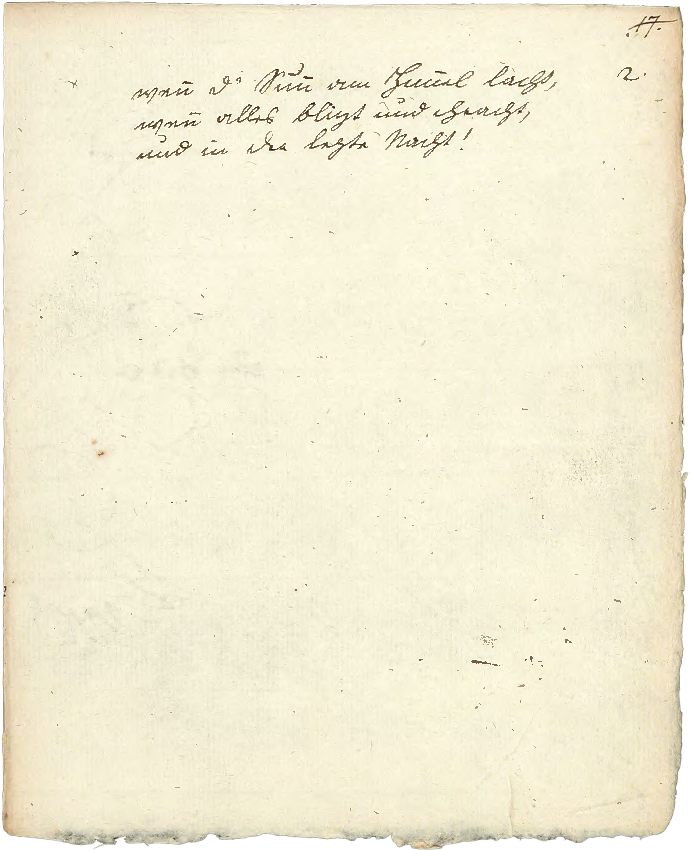 17.
2.
wen̄ d' Sun̄ am Him̄el lacht,
wen̄ alles blizt und chracht,
und in der lezte Nacht!